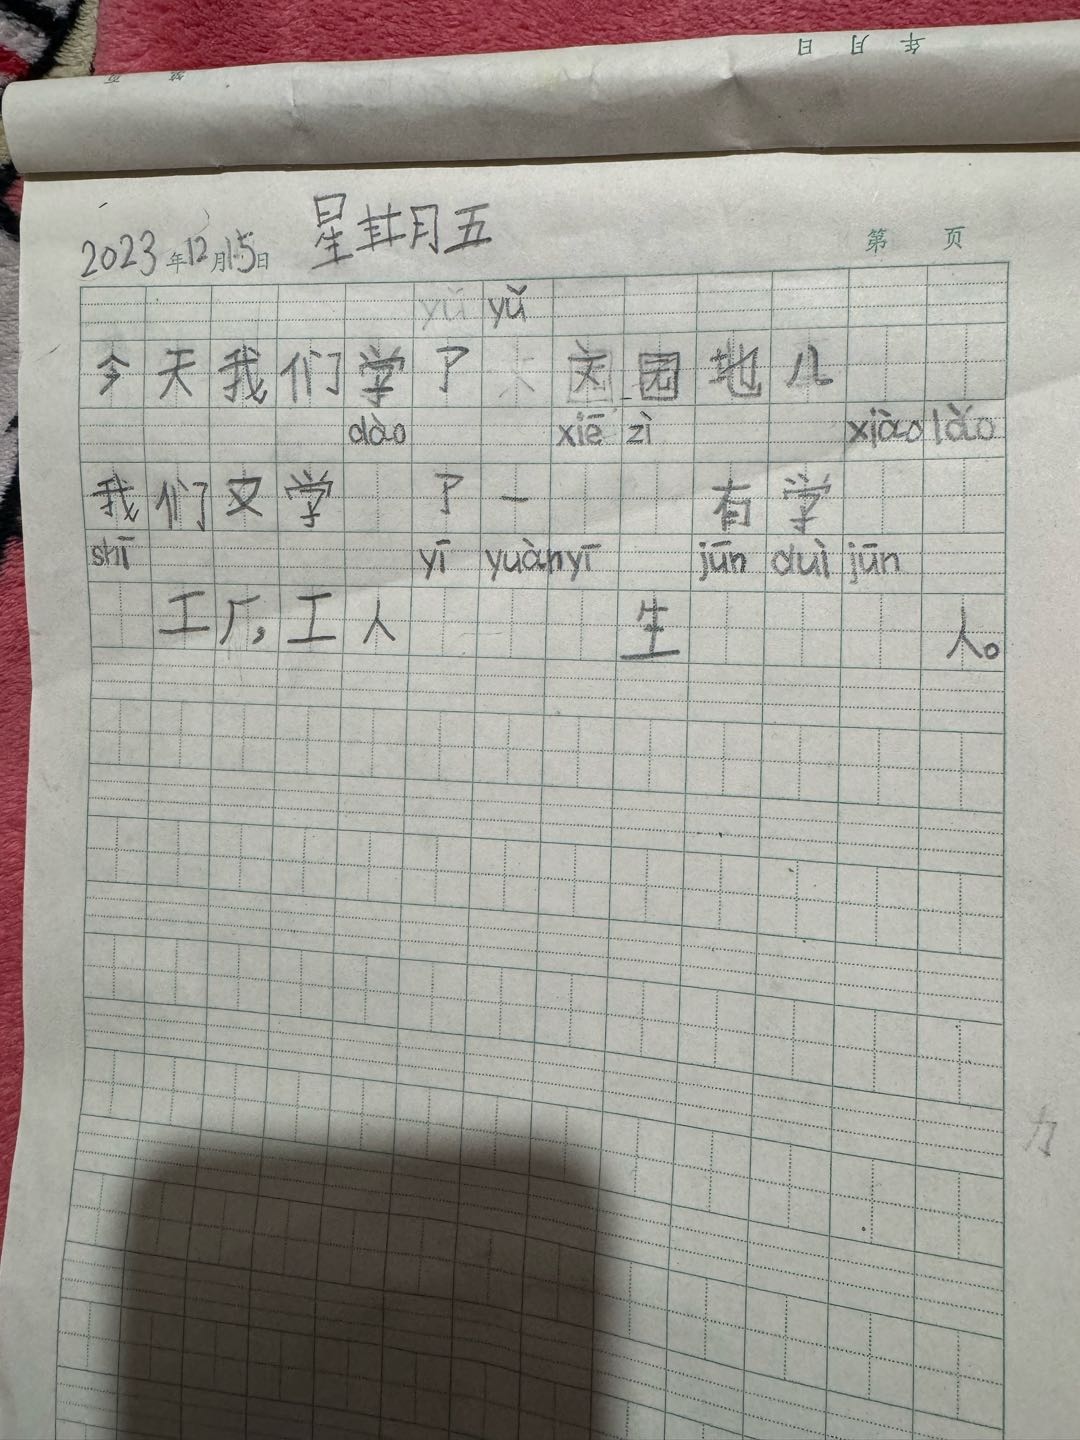 年 月 日
第 页
2023年12月15日 星期五
第 页
yǔ yǔ
今天我们学了 文园地八
dào xiě zì xiào lǎo
我们又学 了一 有学
shī yī yuàn yī jūn duì jūn
工厂,工人 生 人。
力